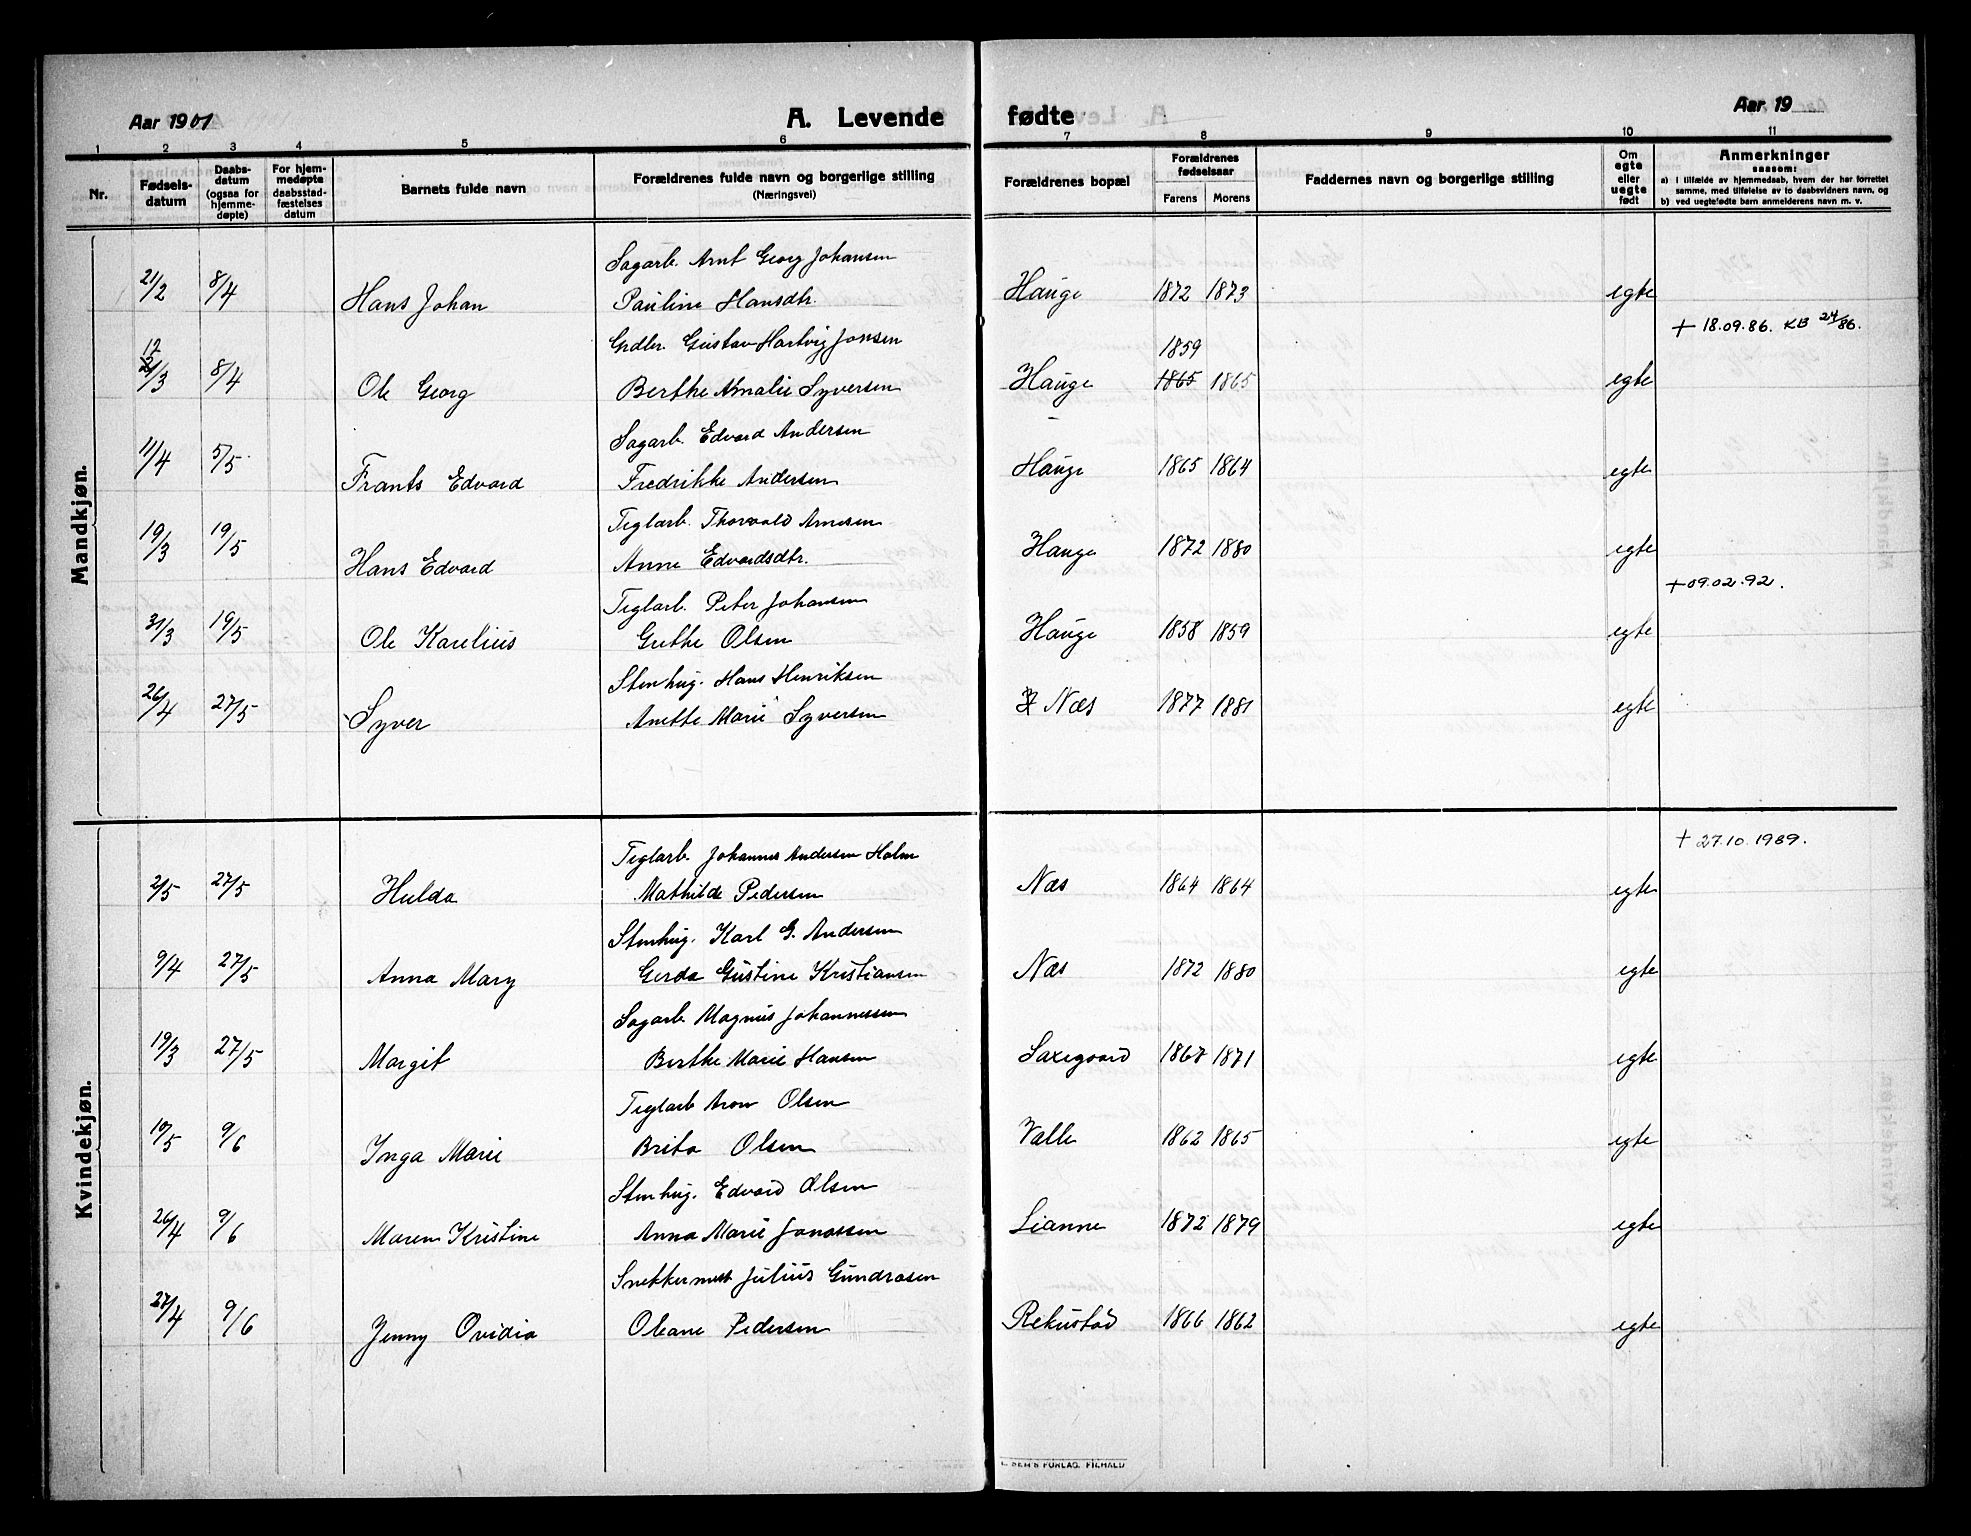 Aar 1901
A. Levende
fødte
Aar 19
1 2 3 4 5 6 7 8 9 10 11
Nr.
Fødsels-
datum
Daabs-
datum
(ogsaa for
hjemme-
døpte)
For hjem-
medøpte
daabsstad-
fæstelses
datum
Barnets fulde navn
Forældrenes fulde navn og borgerlige stilling
(Næringsvei)
Forældrenes bopæl
Forældrenes
fødselsaar
Farens Morens
Faddernes navn og borgerlige stilling
Om
egte
eller
uegte
født
Anmerkninger
saasom:
a) i tilfælde av hjemmedaab, hvem der har forrettet
samme, med tilføielse av to daabsvidners navn, og
b) ved uegtefødte barn anmelderens navn m. v.
Mandkjøn.
Sagarb. Arnt Georg Johansen
21/2 8/4 Hans Johan Pauline Hansdtr. Hauge 1872 1873 egte
+ 18.09.86. KB 24/86.
Grdbr. Gustav Hartvig Jonsen
1859
12
21/3 8/4 Ole Georg Berthe Amalie Syversen Hauge 1865 1865 egte
Sagarb. Edvard Andersen
11/4 5/5 Frants Edvard Fredrikke Andersen Hauge 1865 1864 egte
Teglarb. Thorvald Arnesen
19/3 19/5 Hans Edvard Anne Edvardsdtr. Hauge 1872 1880 egte
+09.02.92.
Teglarb. Peter Johansen
31/3 19/5 Ole Karelius Grethe Olsen Hauge 1858 1859 egte
Stenhug. Hans Henriksen
26/4 27/5 Syver Anette Marie Syversen Næs 1877 1881 egte
Kvindekjøn.
+ 27.10.1989.
Teglarb. Johannes Andersen Holm
2/5 27/5 Hulda Mathilde Pedersen Næs 1864 1864 egte
Stenhug. Karl G. Andersen
9/4 27/5 Anna Mary Gerda Gustine Kristiansen Næs 1872 1880 egte
Sagarb Magnus Johannessen
19/3 27/5 Margit Berthe Marie Hansen Saxegaard 1867 1871 egte
Teglarb Aron Olsen
10/5 9/6 Inga Marie Brita Olsen Valle 1862 1865 egte
Stenhug. Edvard Olsen
26/4 9/6 Maren Kristine Anna Marie Jonassen Lianne 1872 1879 egte
Snekkermest Julius Gundrosen
27/4 9/6 Jenny Ovidia Oleane Pedersen Rekustad 1866 1862 egte